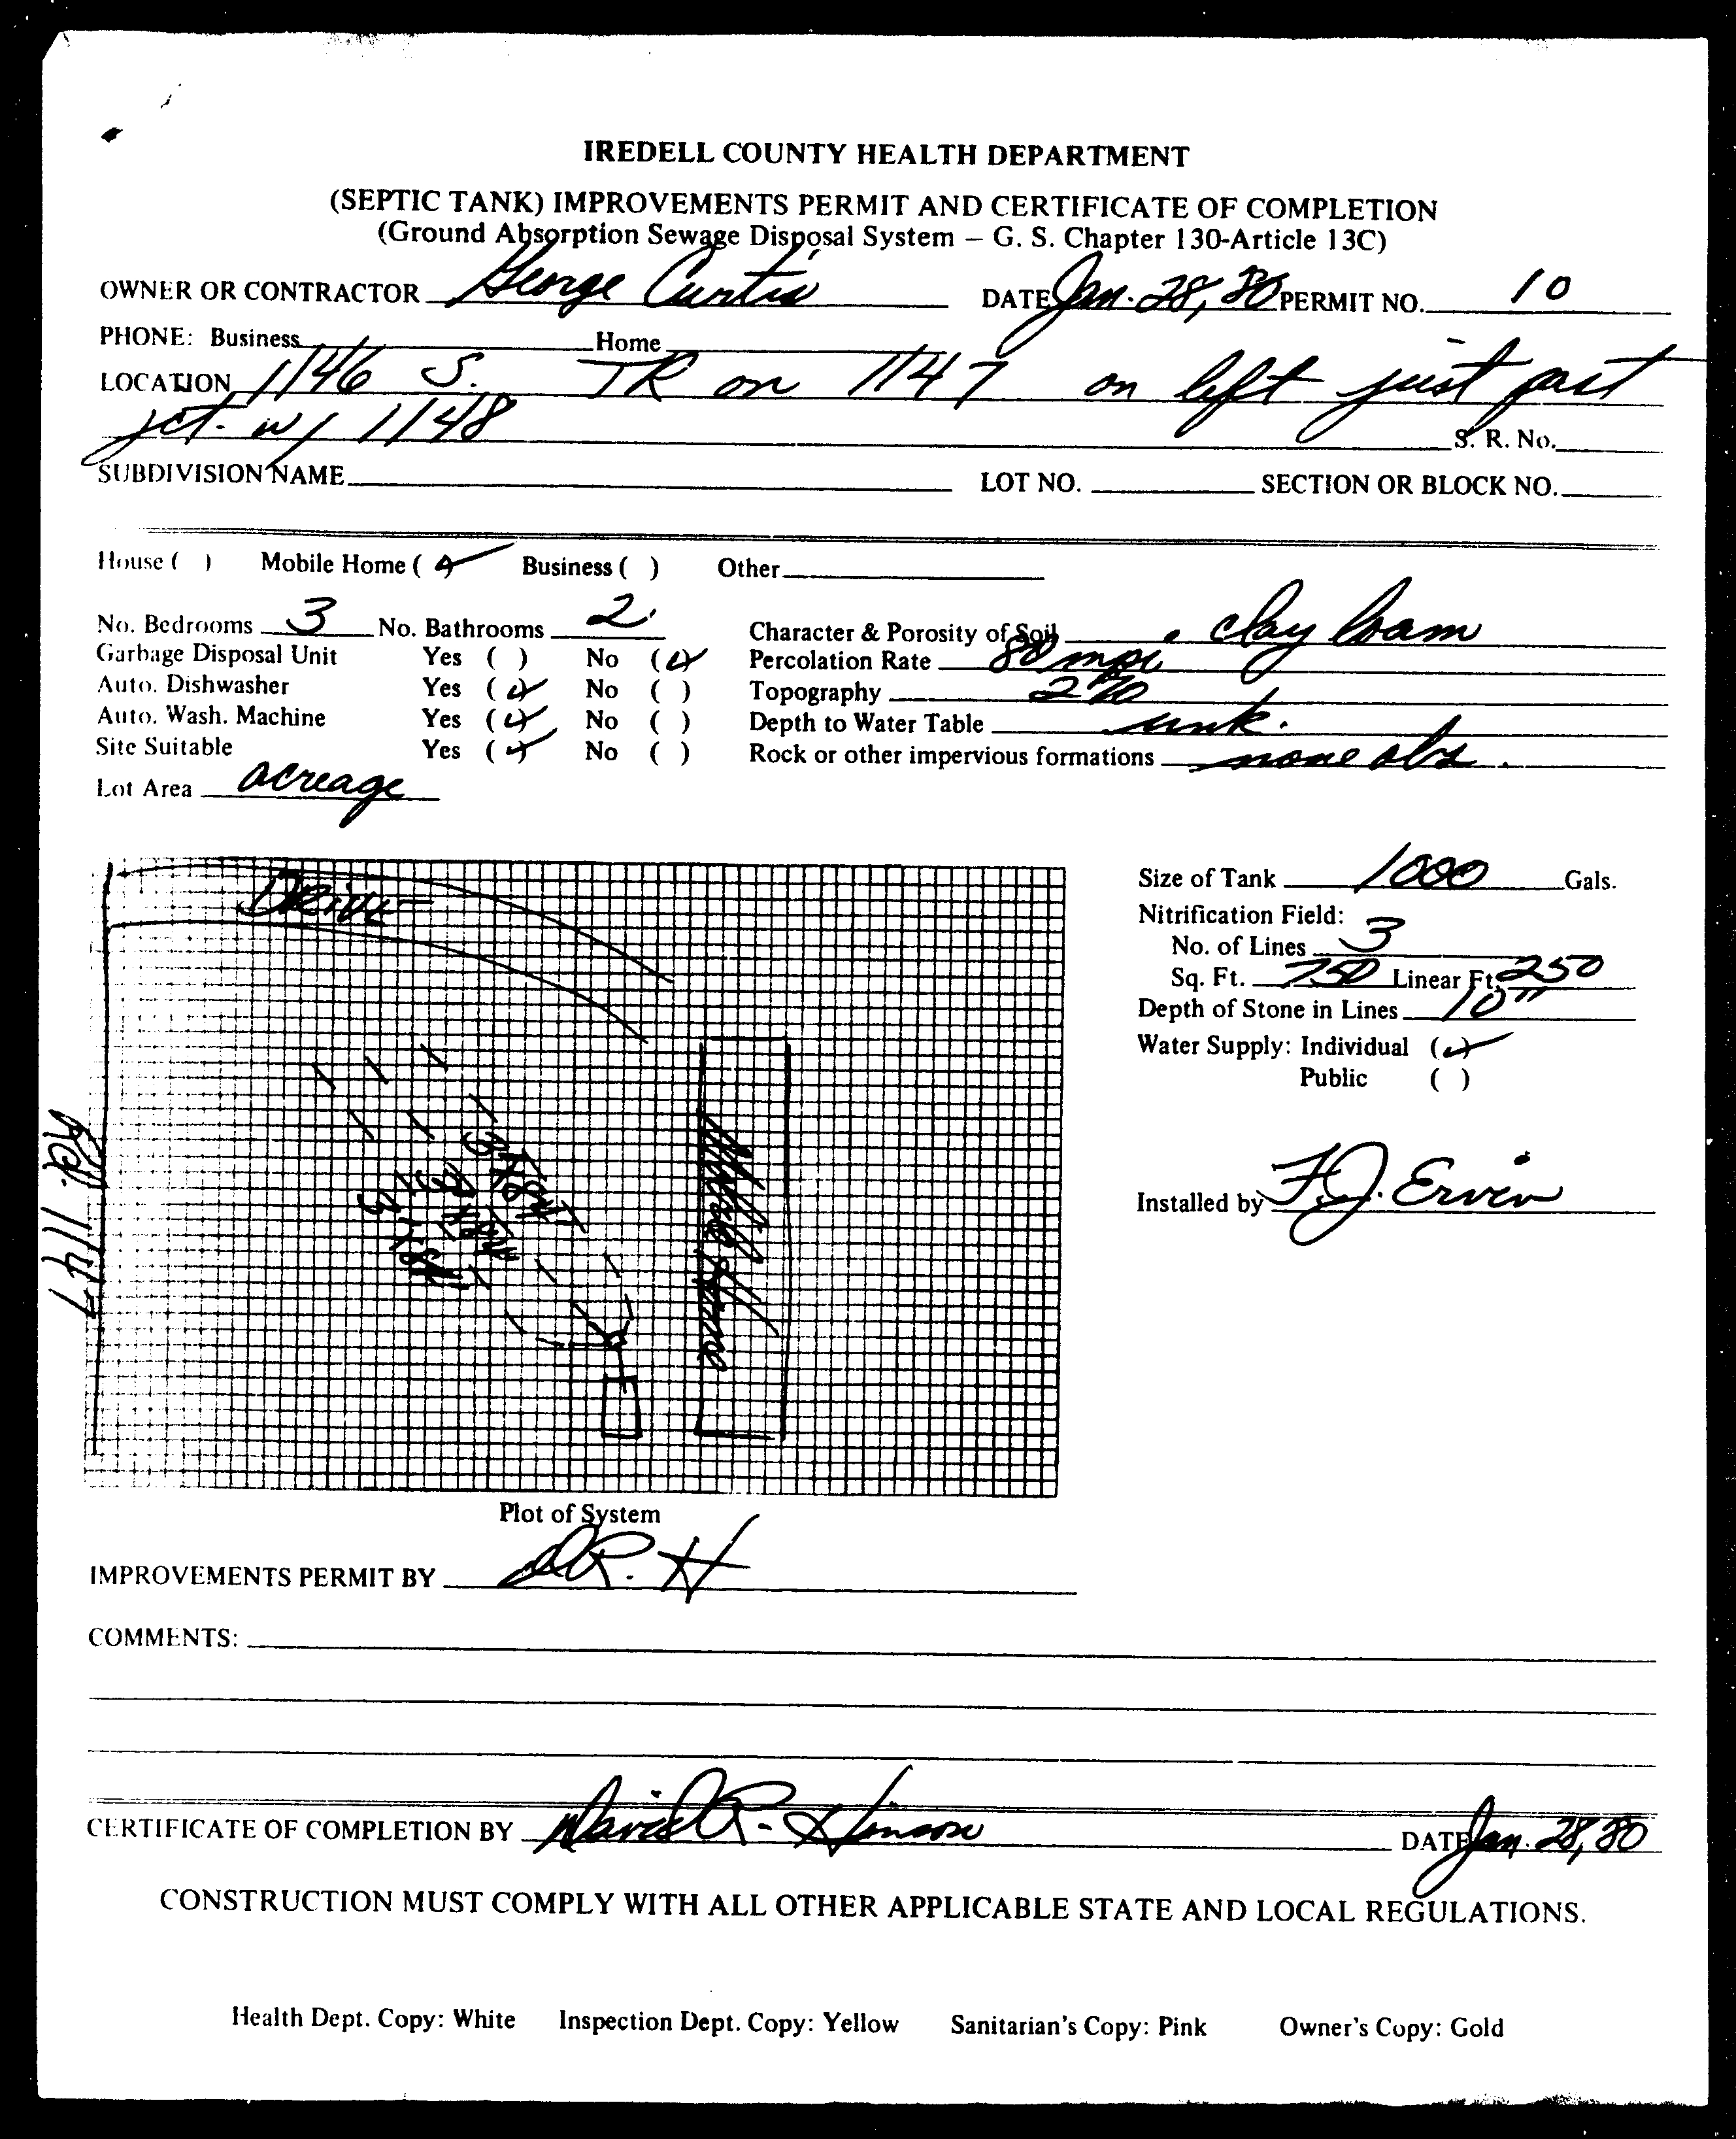 IREDELL COUNTY HEALTH DEPARTMENT
(SEPTIC TANK) IMPROVEMENTS PERMIT AND CERTIFICATE OF COMPLETION
(Ground Absorption Sewage Disposal System – G. S. Chapter 130-Article 13C)
OWNER OR CONTRACTOR George Curtis DATE Jan. 28, 80 PERMIT NO. 10
PHONE: Business Home
LOCATION 1146 S. TR on 1147 on left just past
jct. w/ 1148 S. R. No.
SUBDIVISION NAME LOT NO. SECTION OR BLOCK NO.
House ( ) Mobile Home (✓) Business ( ) Other
No. Bedrooms 3 No. Bathrooms 2 Character & Porosity of Soil clay loam
Garbage Disposal Unit Yes ( ) No (✓) Percolation Rate 80 mpi
Auto. Dishwasher Yes (✓) No ( ) Topography 2%
Auto. Wash. Machine Yes (✓) No ( ) Depth to Water Table unk.
Site Suitable Yes (✓) No ( ) Rock or other impervious formations none obs.
Lot Area acreage
Drive
Rd. 1147
Mobile Home
Size of Tank 1000 Gals.
Nitrification Field:
No. of Lines 3
Sq. Ft. 750 Linear Ft. 250
Depth of Stone in Lines 10"
Water Supply: Individual (✓)
Public ( )
Installed by F.J. Ervin
Plot of System
IMPROVEMENTS PERMIT BY D.R. H
COMMENTS:
CERTIFICATE OF COMPLETION BY David R. Hinson DATE Jan. 28, 80
CONSTRUCTION MUST COMPLY WITH ALL OTHER APPLICABLE STATE AND LOCAL REGULATIONS.
Health Dept. Copy: White Inspection Dept. Copy: Yellow Sanitarian's Copy: Pink Owner's Copy: Gold